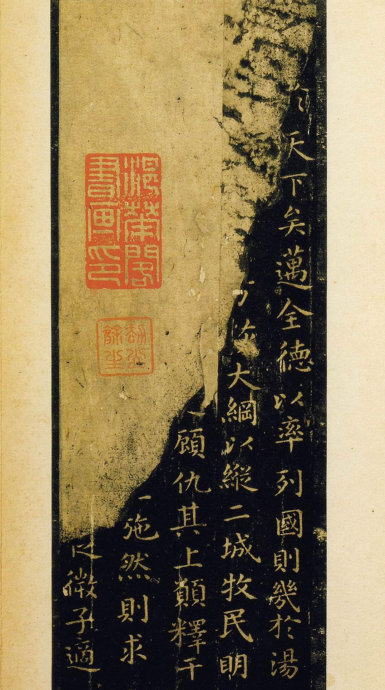 天下矣邁全德以率列國則幾於湯
大綱以縱二城牧民明
顧仇其上願釋干
施然則求
微子適
榮閣
書畫印